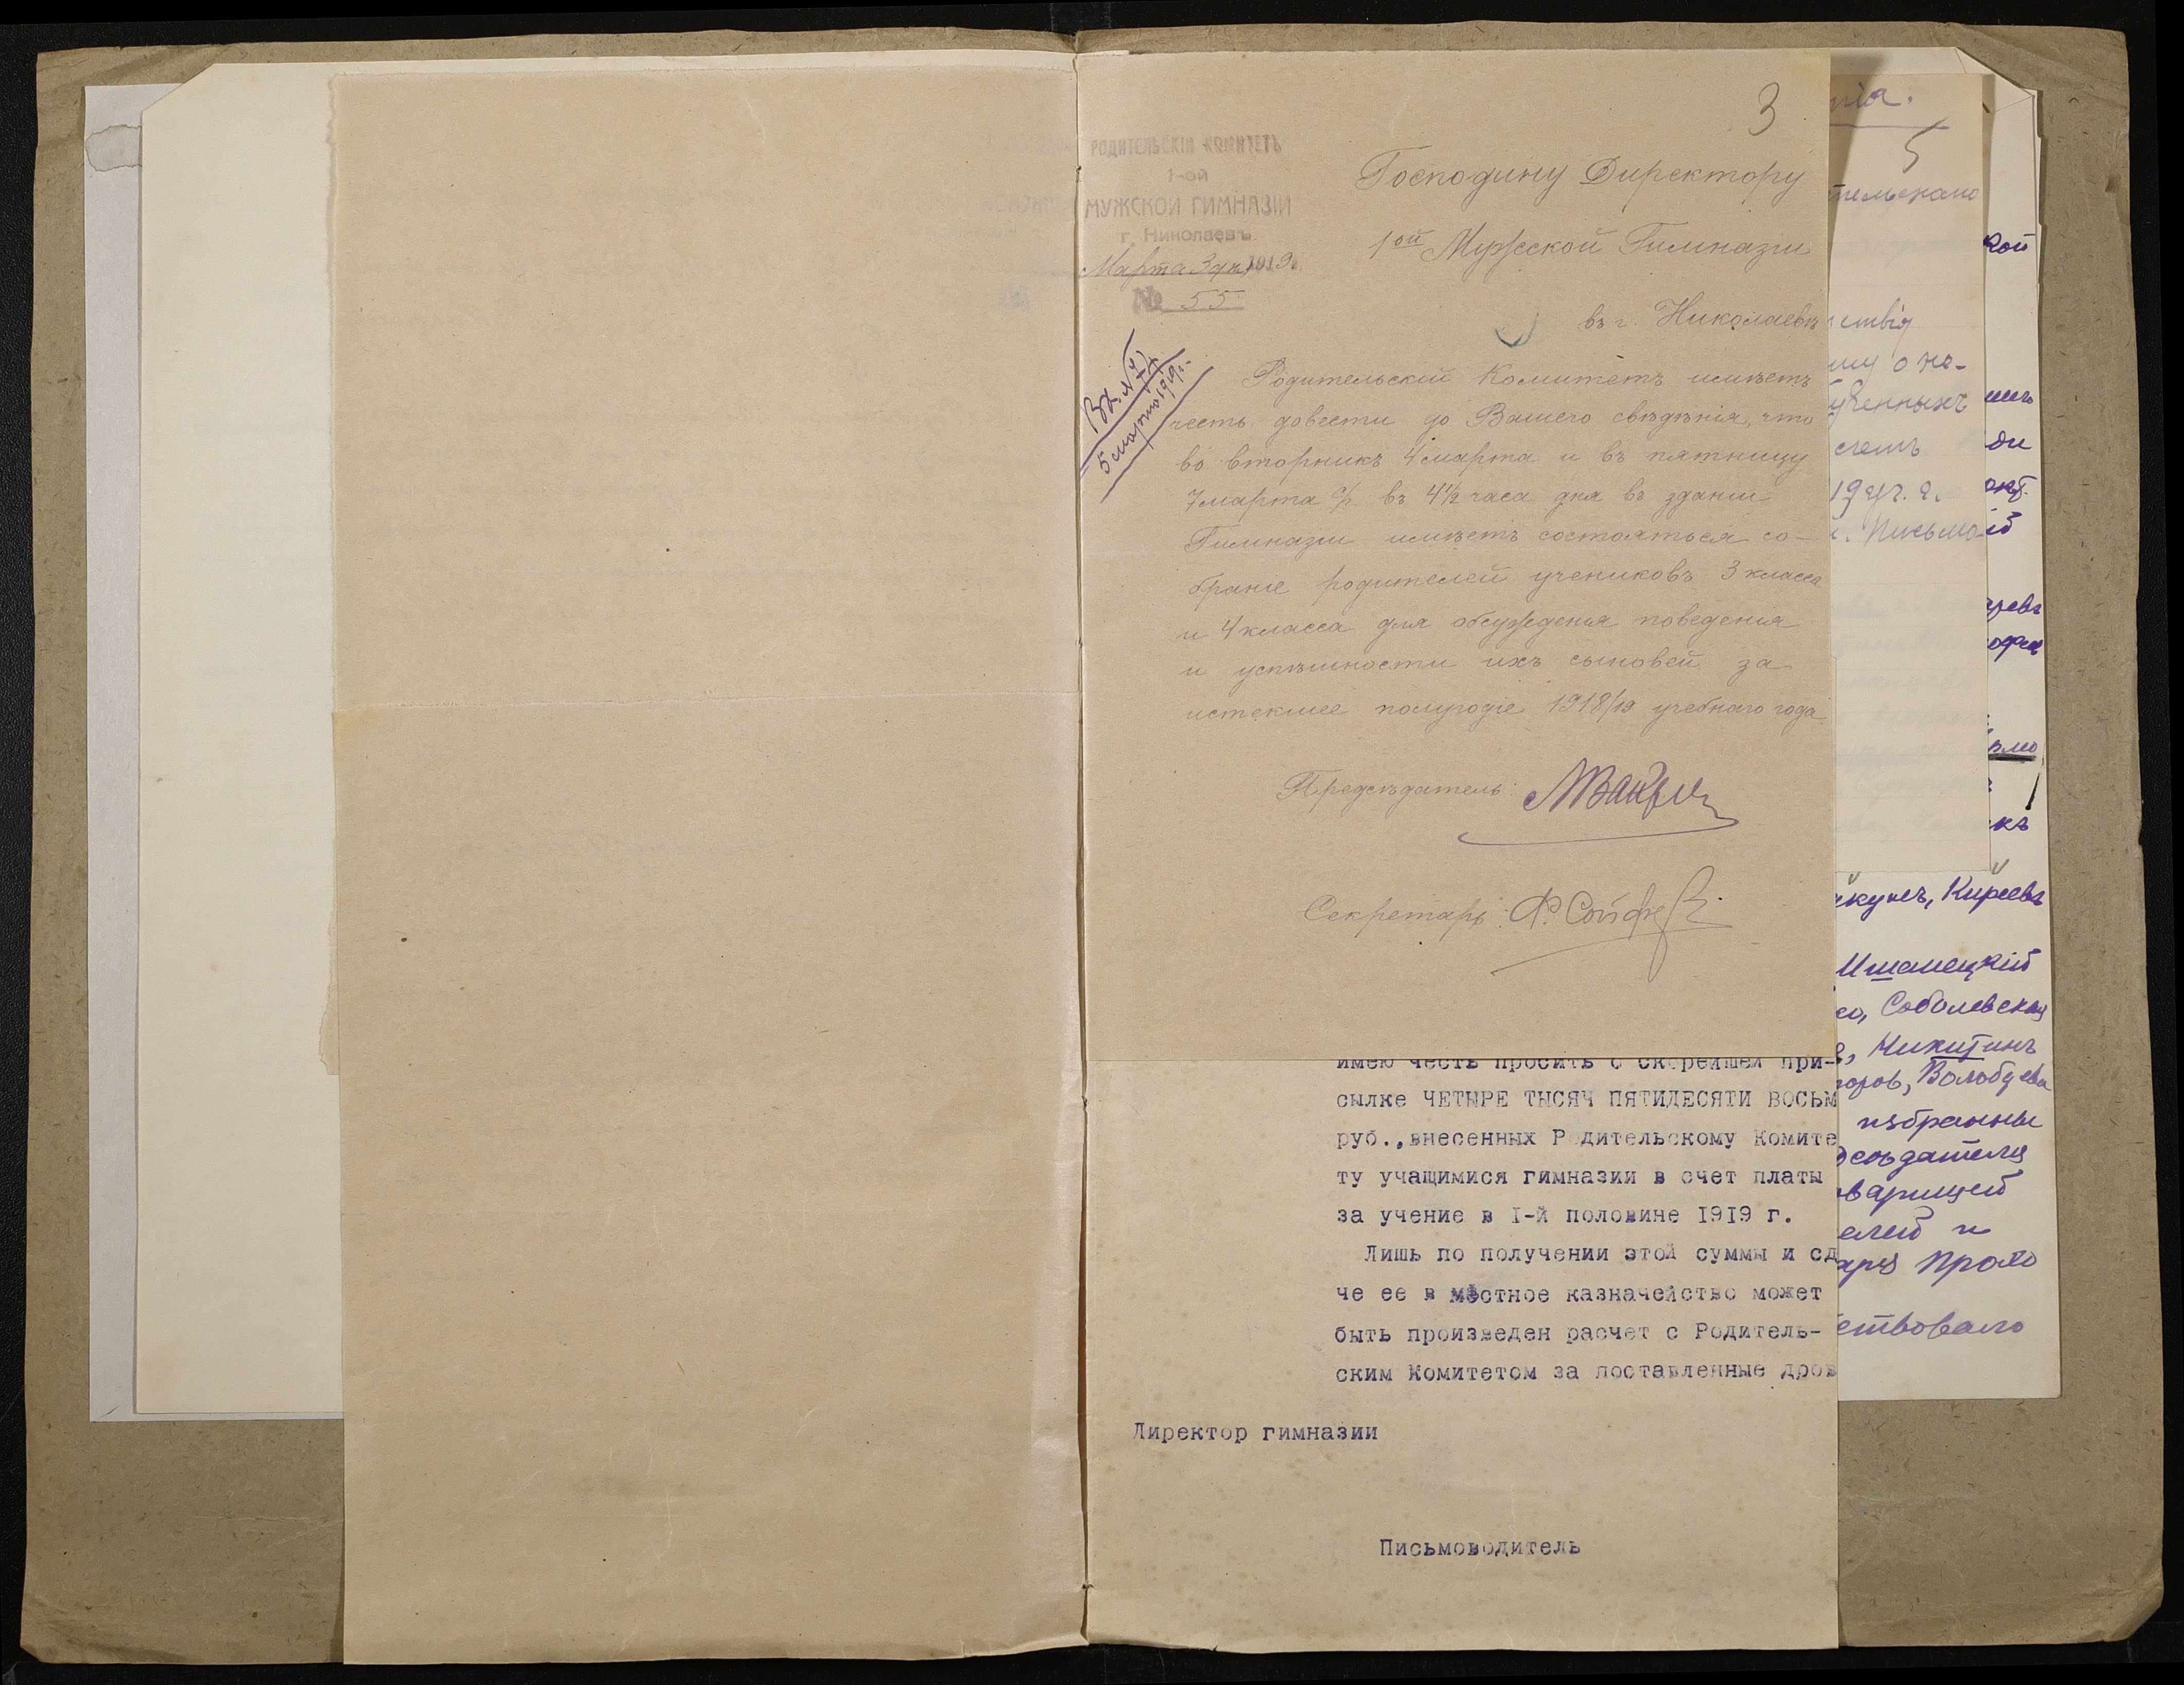 3
РОДИТЕЛЬСКІЙ КОМИТЕТЪ
1-ой
МУЖСКОЙ ГИМНАЗІИ
г. Николаевъ.
Марта 3 дня 1919 г.
№ 55
Вх. №
5 марта 1919 г.
Господину Директору
1ой Мужской Гимназіи
въ г. Николаевѣ
Родительскій Комитетъ имѣетъ
честь довести до Вашего свѣдѣнія, что
во вторникъ 4 марта и въ пятницу
7 марта с/г въ 4 1/2 часа дня въ зданіи
Гимназіи имѣетъ состояться со-
браніе родителей учениковъ 3 класса
и 4 класса для обсужденія поведенія
и успѣшности ихъ сыновей за
истекшее полугодіе 1918/19 учебнаго года
Предсѣдатель:
Секретарь: Ф. Сойфер
имею честь просить о скорейшей при-
сылке ЧЕТЫРЕ ТЫСЯЧ ПЯТИДЕСЯТИ ВОСЬМ
руб., внесенных Родительскому Комите
ту учащимися гимназии в счет платы
за учение в I-й половине I9I9 г.
Лишь по получении этой суммы и сд
че ее в местное казначейство может
быть произведен расчет с Родитель-
ским Комитетом за поставленные дров
Директор гимназии
Письмоводитель
нія.
5
тельскаго
ствія
му о по-
ученныхъ
счетъ
19 г.
Письмо
кой
ди
кунъ, Киреевъ
Ишанецкій
Соболевская
Никитинъ
Волобуева
избранны
едсѣдателя
варищей
елей и
аря Прото
ствовало